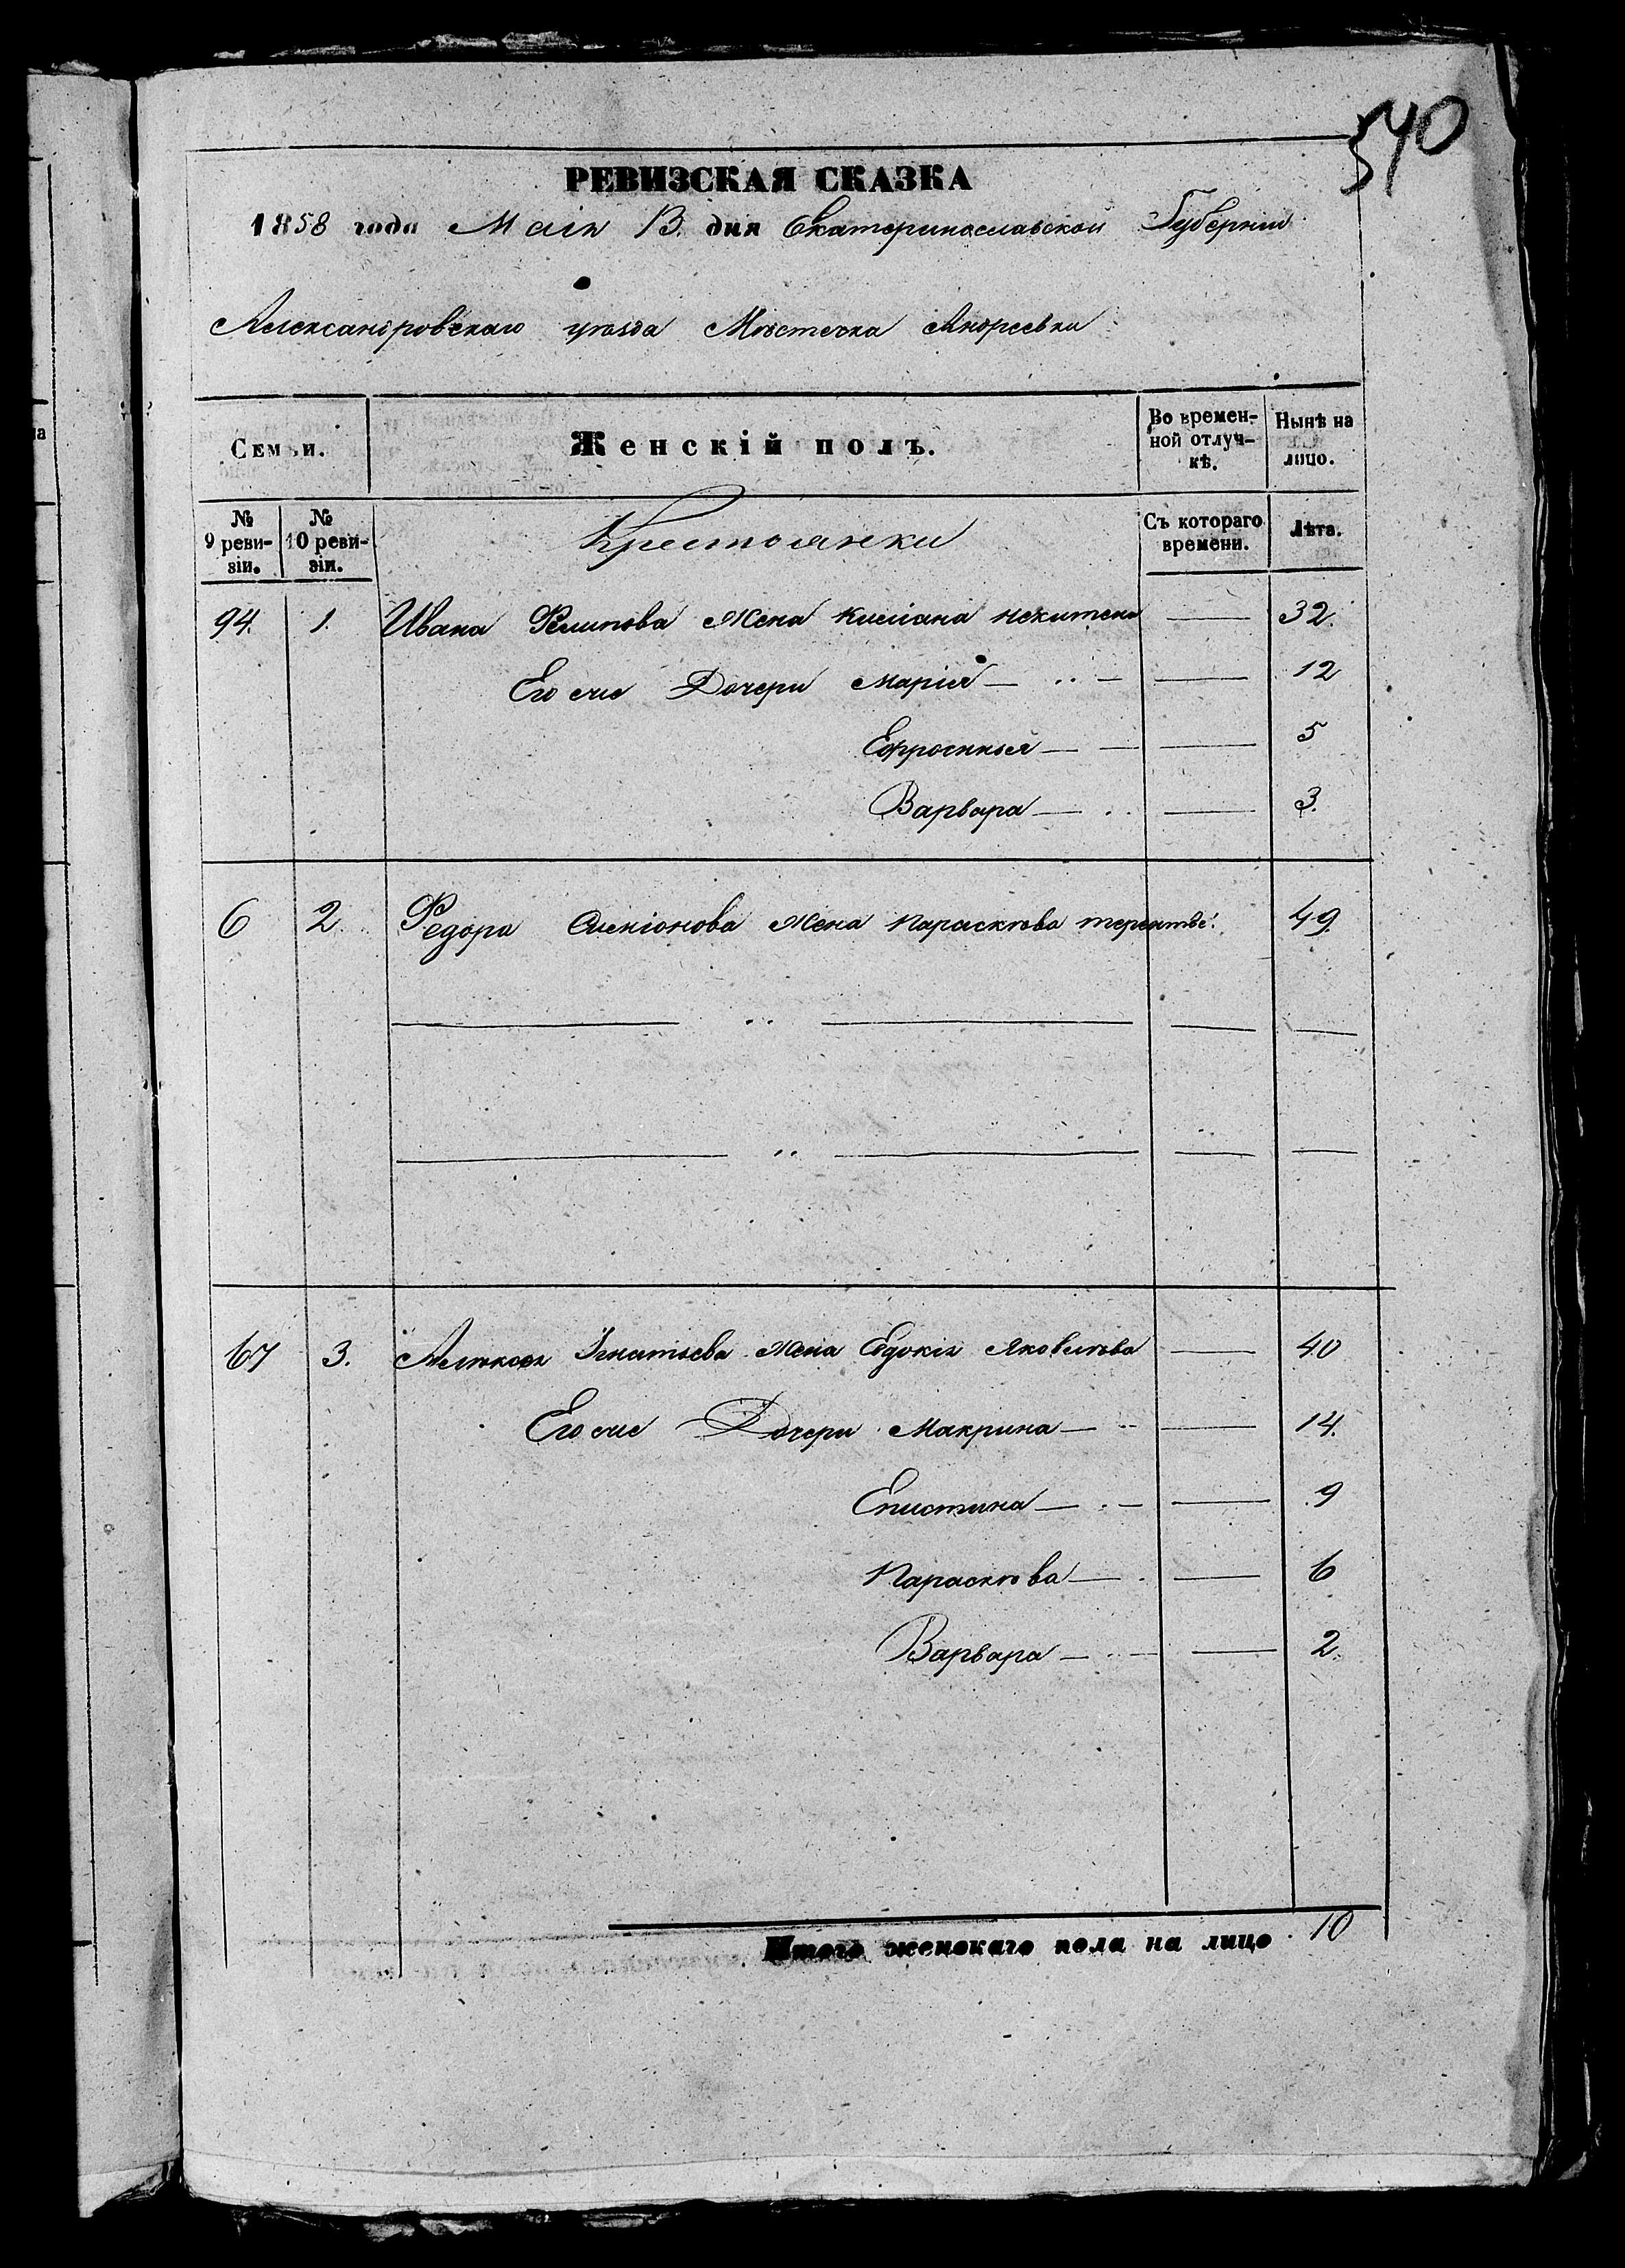 540
РЕВИЗСКАЯ СКАЗКА
1858 года Маія 13. дня Екатеринославской Губерніи
Александровскаго уѣзда Мѣстечка Андреевки
Семьи.
Женскій полъ.
Во времен-
ной отлуч-
кѣ.
Нынѣ на
лицо.
№
9 реви-
зіи.
№
10 реви-
зіи.
Крестьянки
Съ котораго
времени.
Лѣта.
94. 1. Ивана Филипова Жена 32.
Его же Дочери Марія 12
Ефросинья 5
Варвара 3.
6 2. Федора Семіонова Жена Парасковѣа 49.
67 3. Алѣксея Игнатьева Жена Евдокія Яковлѣва 40
Его же Дочери Макрина 14.
Епистима 9
Параскѣва 6
Варвара 2.
Итого женскаго пола на лицо 10